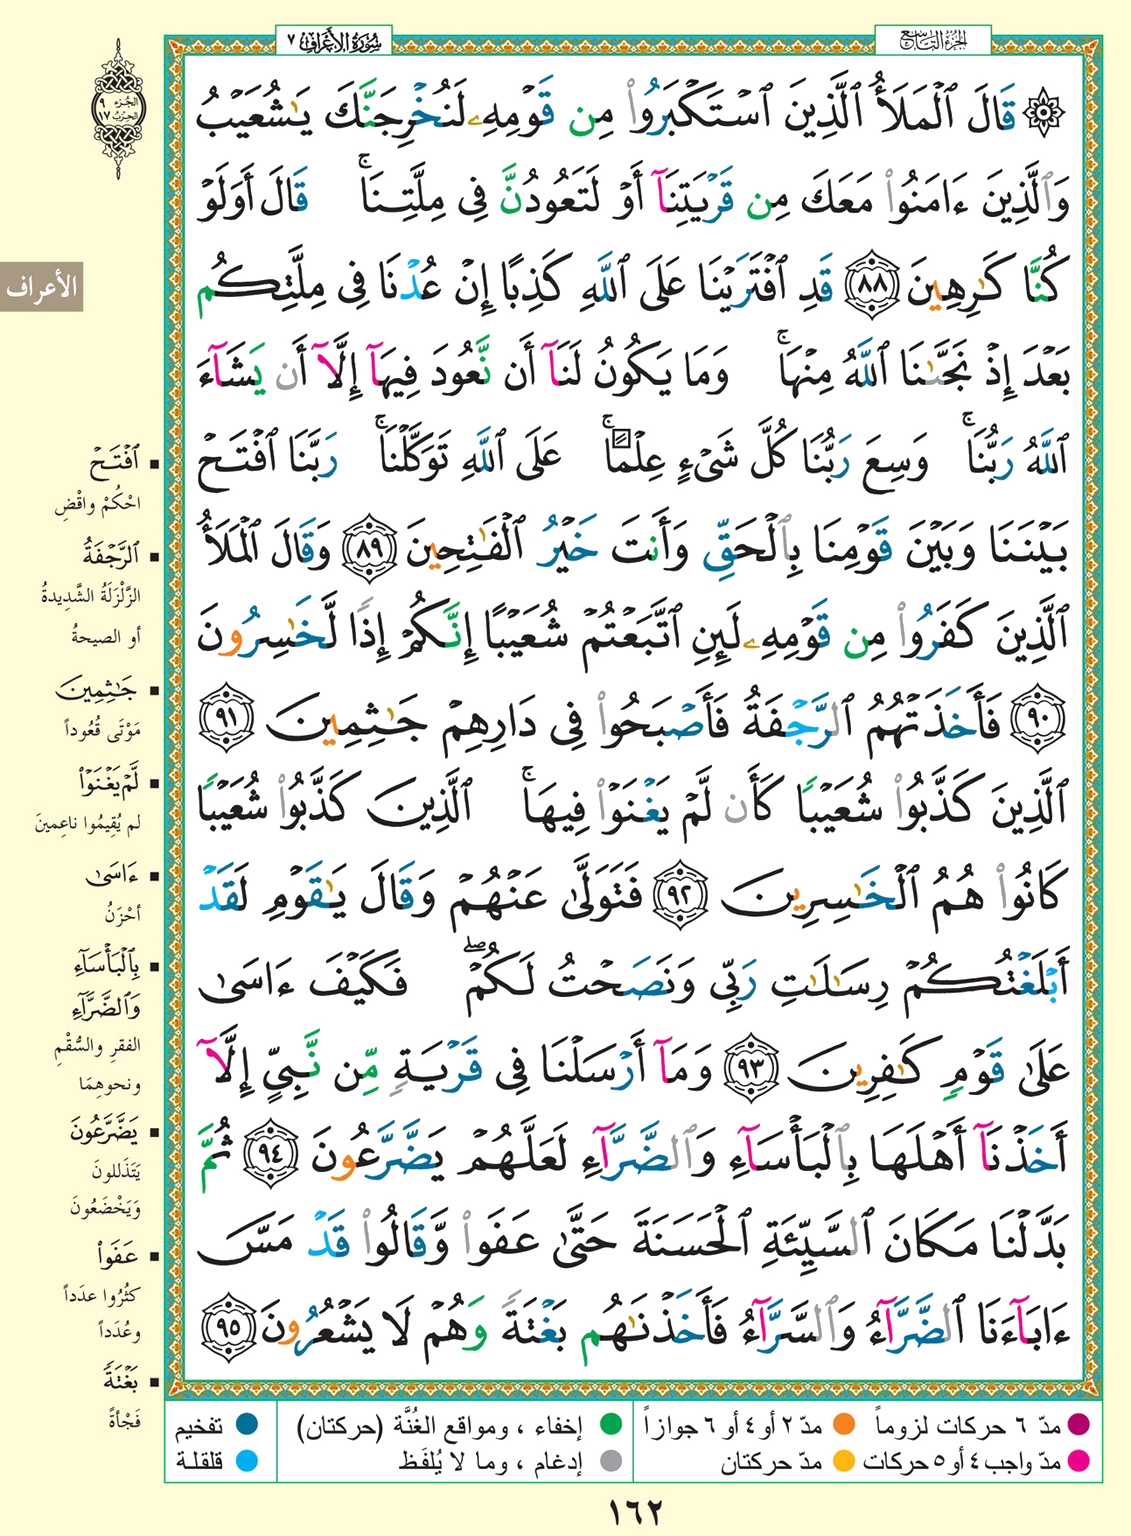 سُورَةُ الأَعْرَافِ ٧
الجزء التاسع
الجزء ٩
الحزب ١٧
الأعراف
۞ قَالَ ٱلْمَلَأُ ٱلَّذِينَ ٱسْتَكْبَرُوا۟ مِن قَوْمِهِۦ لَنُخْرِجَنَّكَ يَـٰشُعَيْبُ
وَٱلَّذِينَ ءَامَنُوا۟ مَعَكَ مِن قَرْيَتِنَآ أَوْ لَتَعُودُنَّ فِى مِلَّتِنَا ۚ قَالَ أَوَلَوْ
كُنَّا كَـٰرِهِينَ ٨٨ قَدِ ٱفْتَرَيْنَا عَلَى ٱللَّهِ كَذِبًا إِنْ عُدْنَا فِى مِلَّتِكُم
بَعْدَ إِذْ نَجَّىٰنَا ٱللَّهُ مِنْهَا ۚ وَمَا يَكُونُ لَنَآ أَن نَّعُودَ فِيهَآ إِلَّآ أَن يَشَآءَ
ٱللَّهُ رَبُّنَا ۚ وَسِعَ رَبُّنَا كُلَّ شَىْءٍ عِلْمًا ۚ عَلَى ٱللَّهِ تَوَكَّلْنَا ۚ رَبَّنَا ٱفْتَحْ
بَيْنَنَا وَبَيْنَ قَوْمِنَا بِٱلْحَقِّ وَأَنتَ خَيْرُ ٱلْفَـٰتِحِينَ ٨٩ وَقَالَ ٱلْمَلَأُ
ٱلَّذِينَ كَفَرُوا۟ مِن قَوْمِهِۦ لَئِنِ ٱتَّبَعْتُمْ شُعَيْبًا إِنَّكُمْ إِذًا لَّخَـٰسِرُونَ
٩٠ فَأَخَذَتْهُمُ ٱلرَّجْفَةُ فَأَصْبَحُوا۟ فِى دَارِهِمْ جَـٰثِمِينَ ٩١
ٱلَّذِينَ كَذَّبُوا۟ شُعَيْبًا كَأَن لَّمْ يَغْنَوْا۟ فِيهَا ۚ ٱلَّذِينَ كَذَّبُوا۟ شُعَيْبًا
كَانُوا۟ هُمُ ٱلْخَـٰسِرِينَ ٩٢ فَتَوَلَّىٰ عَنْهُمْ وَقَالَ يَـٰقَوْمِ لَقَدْ
أَبْلَغْتُكُمْ رِسَـٰلَـٰتِ رَبِّى وَنَصَحْتُ لَكُمْ ۖ فَكَيْفَ ءَاسَىٰ
عَلَىٰ قَوْمٍ كَـٰفِرِينَ ٩٣ وَمَآ أَرْسَلْنَا فِى قَرْيَةٍ مِّن نَّبِىٍّ إِلَّآ
أَخَذْنَآ أَهْلَهَا بِٱلْبَأْسَآءِ وَٱلضَّرَّآءِ لَعَلَّهُمْ يَضَّرَّعُونَ ٩٤ ثُمَّ
بَدَّلْنَا مَكَانَ ٱلسَّيِّئَةِ ٱلْحَسَنَةَ حَتَّىٰ عَفَوا۟ وَّقَالُوا۟ قَدْ مَسَّ
ءَابَآءَنَا ٱلضَّرَّآءُ وَٱلسَّرَّآءُ فَأَخَذْنَـٰهُم بَغْتَةً وَهُمْ لَا يَشْعُرُونَ ٩٥
▪ ٱفْتَحْ
احْكُمْ واقْضِ
▪ ٱلرَّجْفَةُ
الزَّلْزَلَةُ الشَّدِيدةُ
أو الصيحةُ
▪ جَـٰثِمِينَ
مَوْتَى قُعُوداً
▪ لَّمْ يَغْنَوْا۟
لم يُقِيمُوا ناعِمينَ
▪ ءَاسَىٰ
أحْزَنُ
▪ بِٱلْبَأْسَآءِ
وَٱلضَّرَّآءِ
الفقرِ والسُّقْمِ
ونحوِهِمَا
▪ يَضَّرَّعُونَ
يَتَذَللونَ
وَيَخْضَعُونَ
▪ عَفَوا۟
كثُرُوا عدَداً
وعُدَداً
▪ بَغْتَةً
فَجْأةً
مدّ ٦ حركات لزوماً
مدّ ٢ أو ٤ أو ٦ جوازاً
إخفاء ، ومواقع الغُنَّة (حركتان)
تفخيم
مدّ واجب ٤ أو ٥ حركات
مدّ حركتان
إدغام ، وما لا يُلفَظ
قلقلة
١٦٢